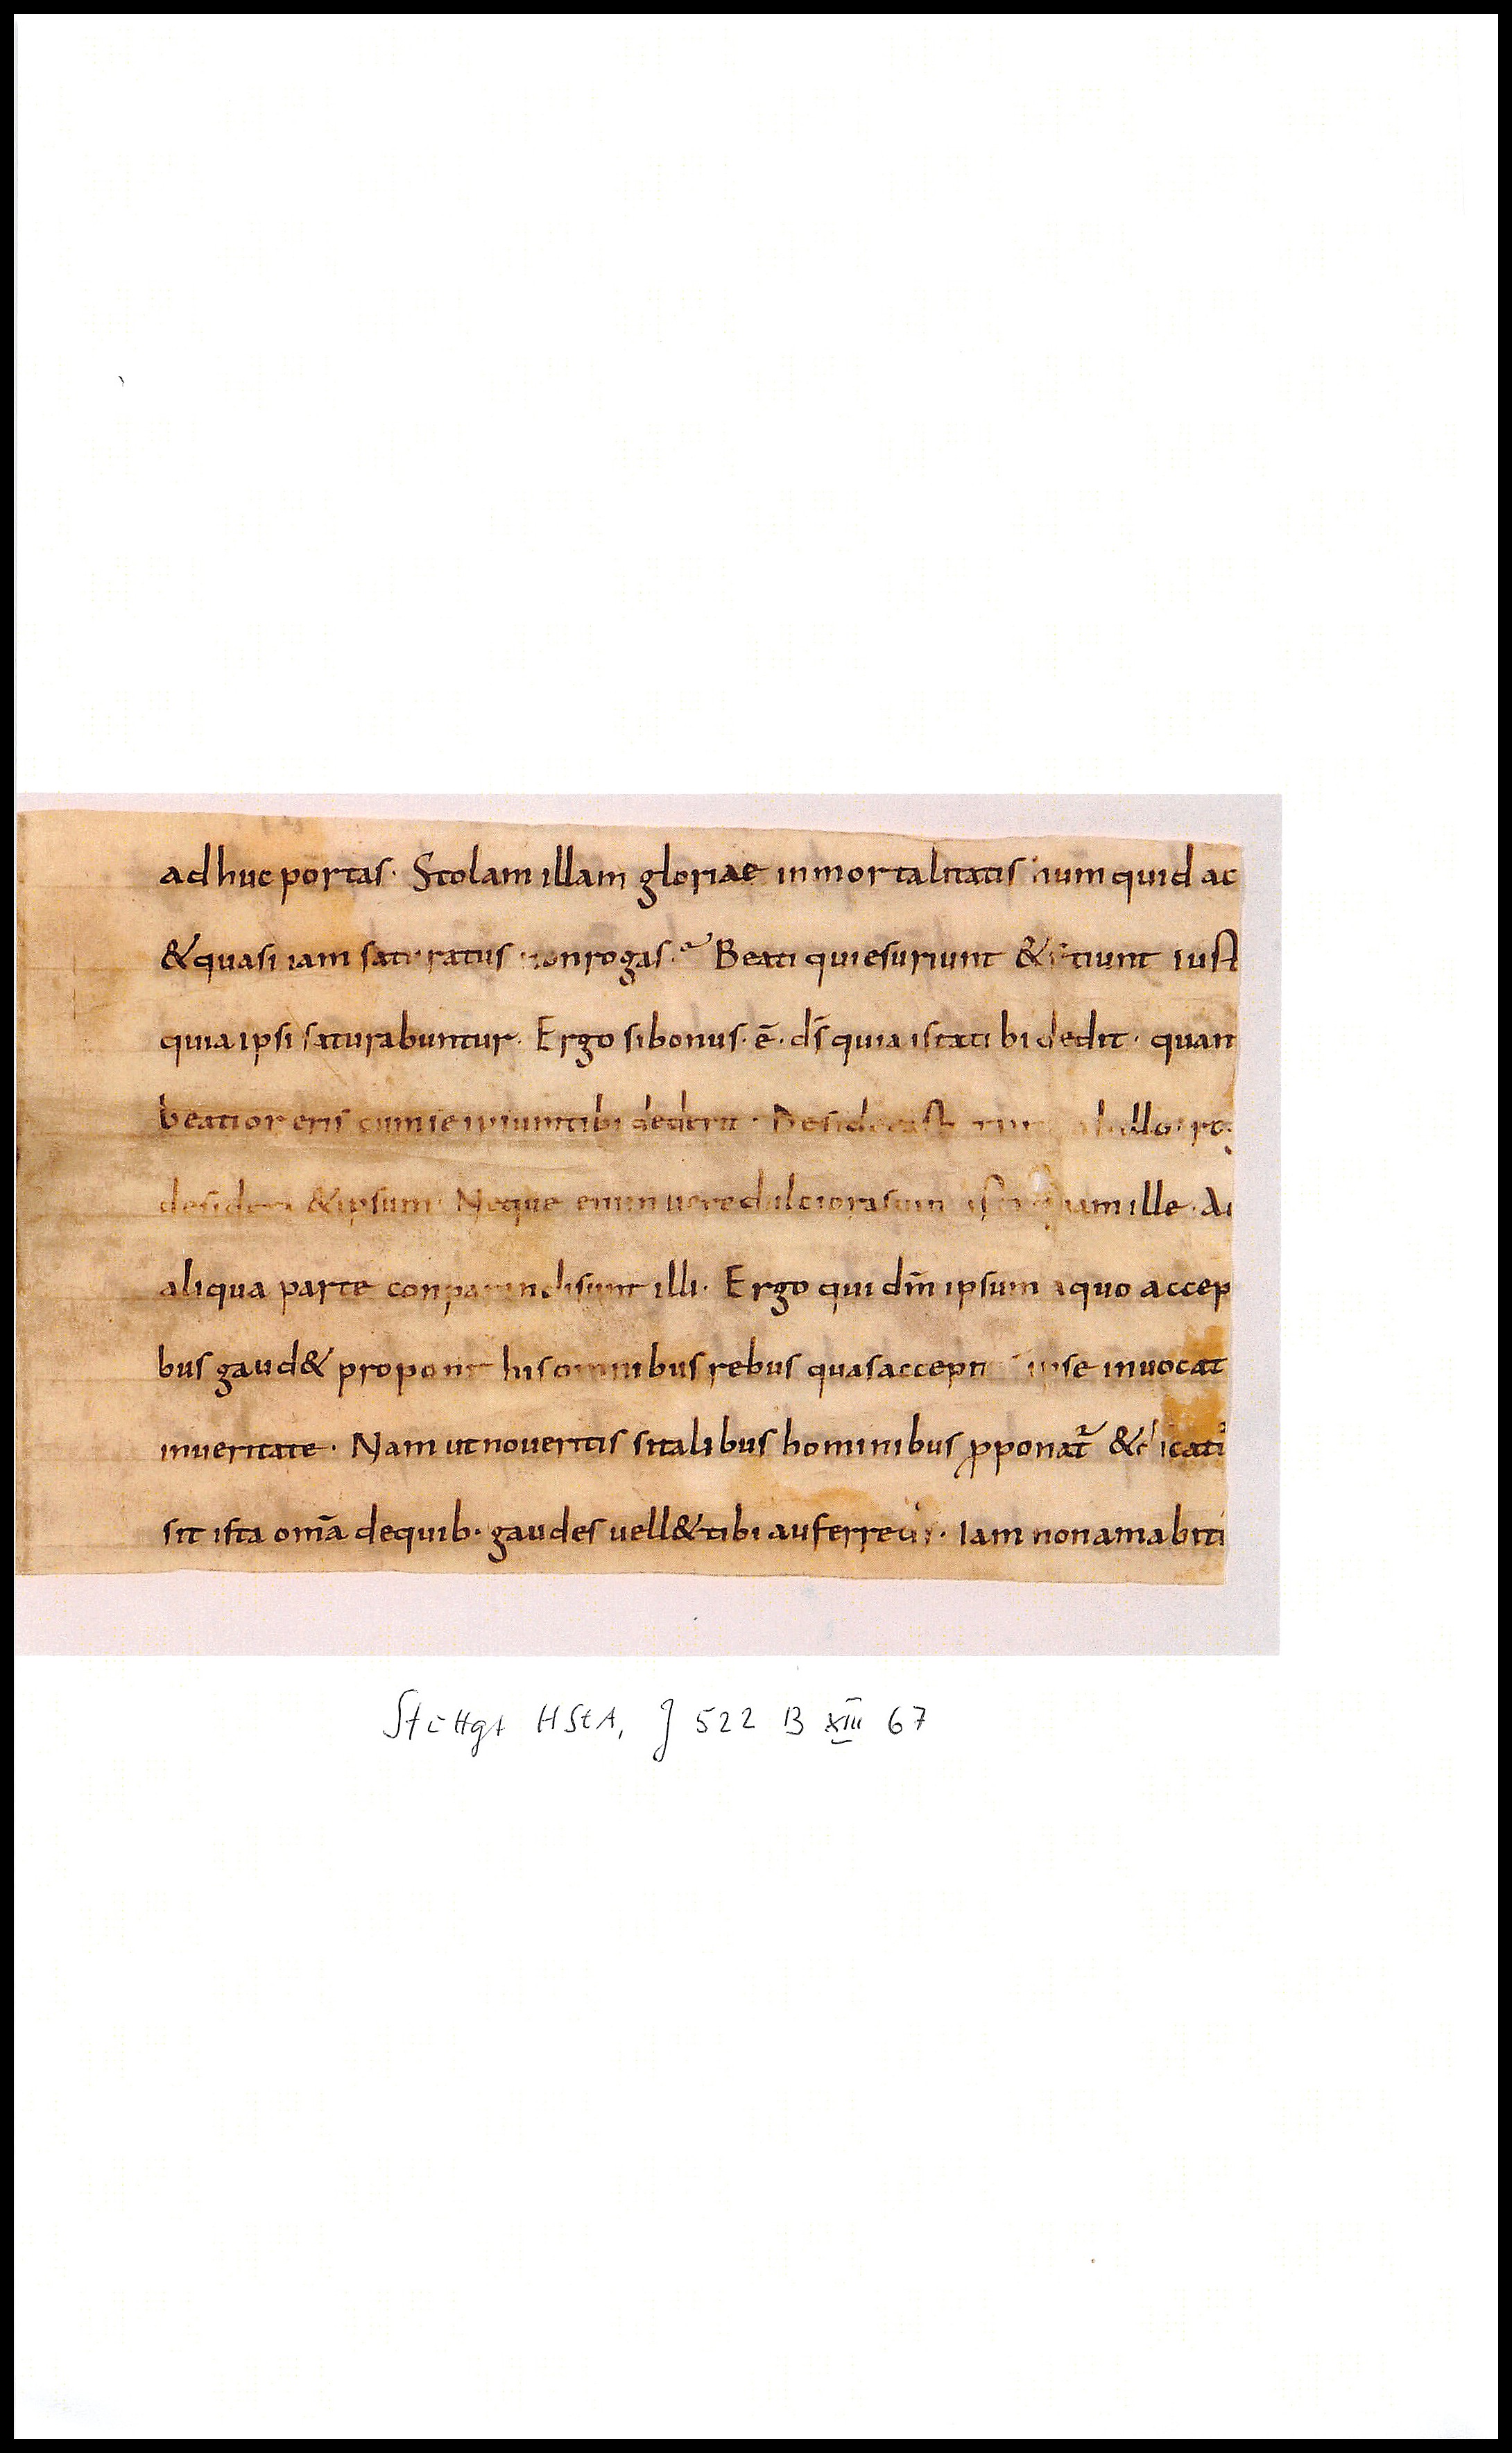 adhuc portas· Stolam illam gloriae inmortalitatis numquid ac
& quasi iam saturatus non rogas· Beati qui esuriunt & sitiunt iust
quia ipsi saturabuntur· Ergo si bonus· ē· ds̄ quia ista tibi dedit· quan
beatior eris cum se ipsum tibi dederit· ro
desidera & ipsum· Neque enim vere dulciora sunt ista quam ille· A
aliqua parte conparandi sunt illi· Ergo qui dm̄ ipsum a quo accep
bus gaud& proponit his omnibus rebus quas accepit ipse invocat
in veritate· Nam ut noveritis si talibus hominibus ꝓponat᷑ & dicat᷑
sit ista om̄a de quib· gaudes vell& tibi auferre· Iam non amabiti
Stuttgt HStA, J 522 B XIII 67